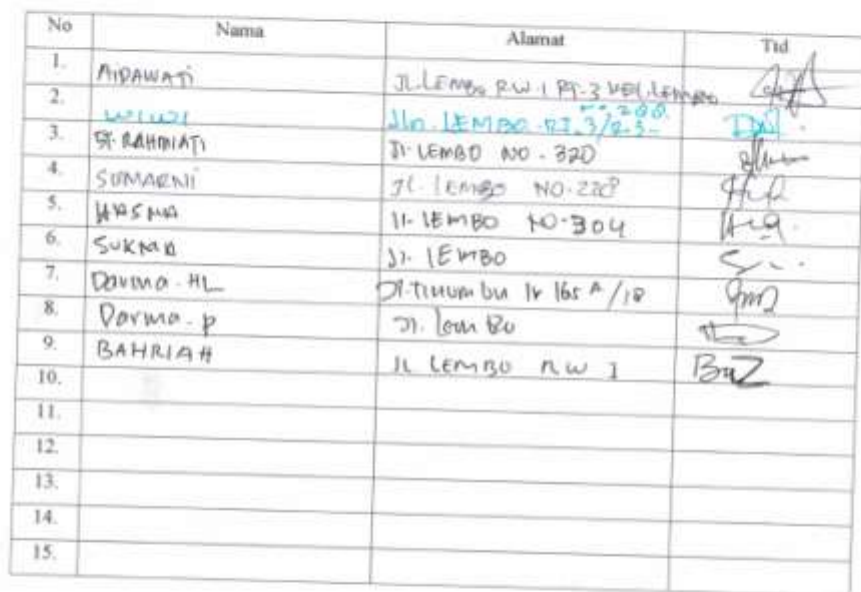 No Nama Alamat Ttd
1. AIDAWATI JL. LEMBO RW. 1 RT. 3 KEL. LEMBO
2. WIWI Jln. LEMBO RT. 3/
3. ST. RAHMIATI Jl. LEMBO NO. 320
4. SUMARNI Jl. LEMBO NO. 228
5. HASNA Jl. LEMBO NO. 304
6. SUKMA Jl. LEMBO
7. Darma. HL Jl. 165 A / 18
8. Darma. p Jl. Lem Bo
9. BAHRIAH JL LEMBO RW I
10.
11.
12.
13.
14.
15.